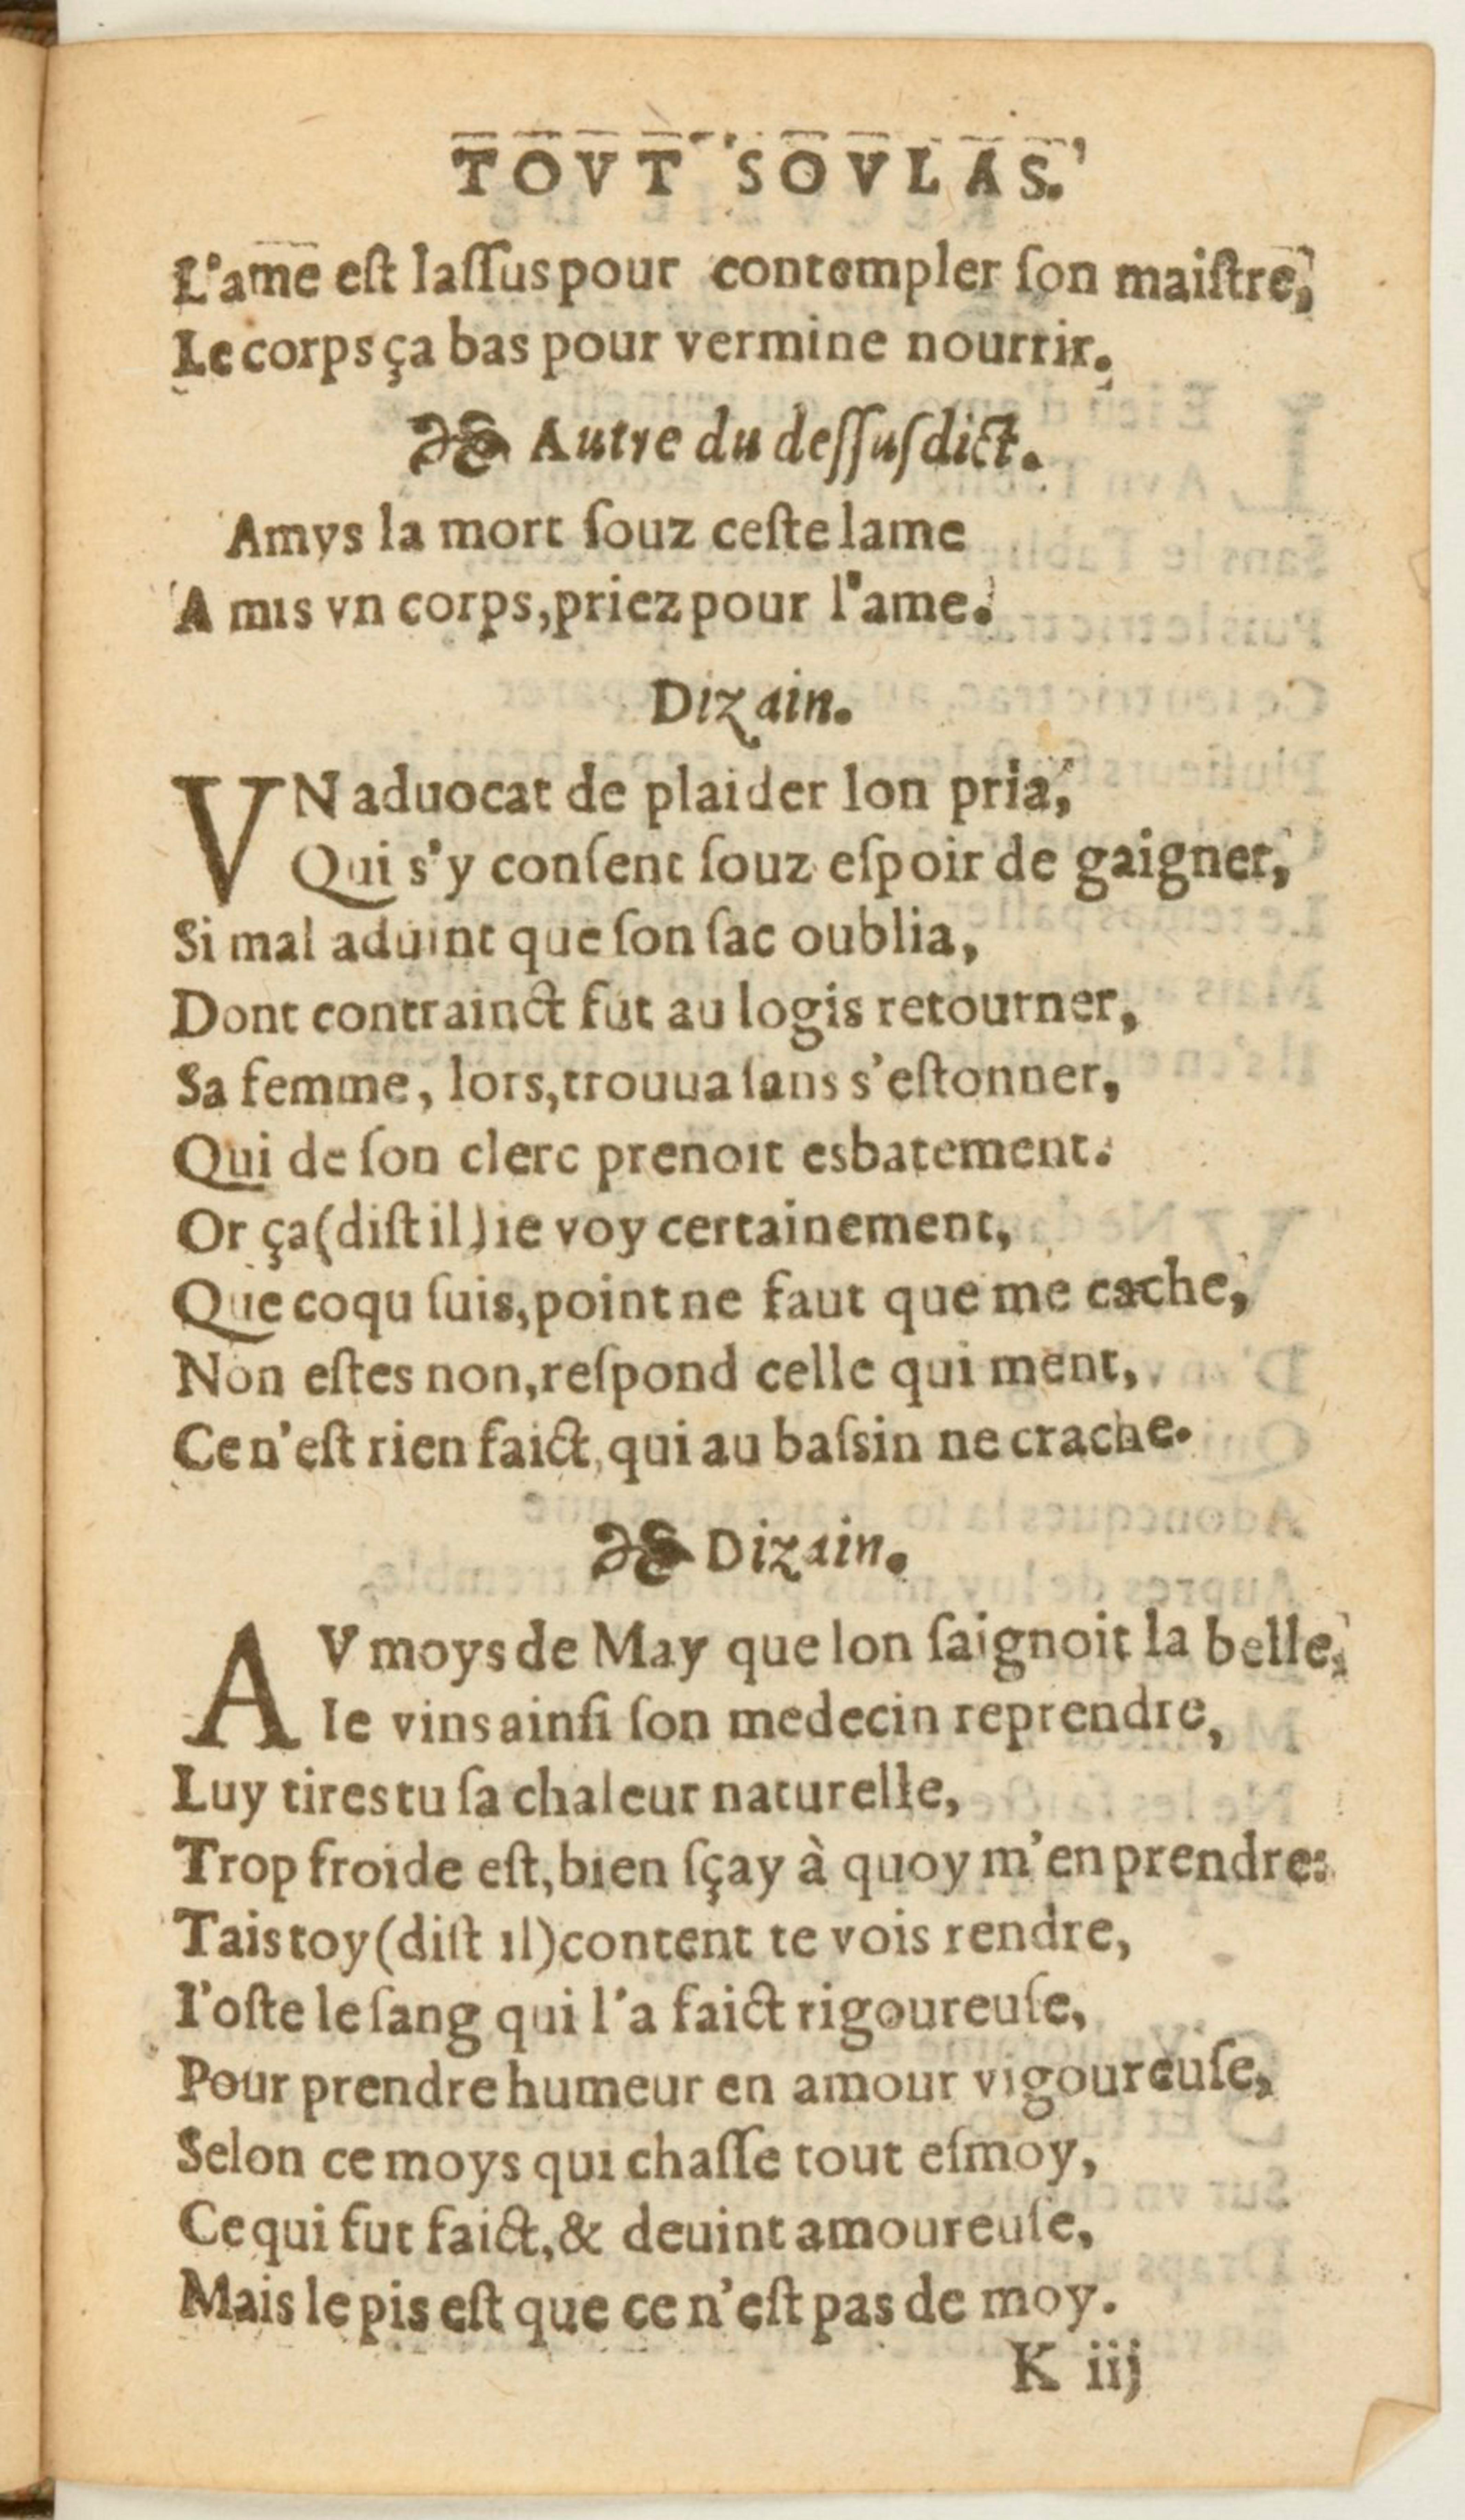 TOVT SOVLAS.
L'ame eſt laſſus pour contempler ſon maiſtre,
Le corps ça bas pour vermine nourrir.
Autre du deſſuſdict.
Amys la mort ſouz ceſte lame
A mis vn corps, priez pour l'ame.
Dizain.
VN aduocat de plaider lon pria,
Qui s'y conſent ſouz eſpoir de gaigner,
Si mal aduint que ſon ſac oublia,
Dont contrainct fut au logis retourner,
Sa femme, lors, trouua ſans s'eſtonner,
Qui de ſon clerc prenoit esbatement.
Or ça (diſt il) ie voy certainement,
Que coqu ſuis, point ne faut que me cache,
Non eſtes non, reſpond celle qui ment,
Ce n'eſt rien faict, qui au baſsin ne crache.
Dizain.
AV moys de May que lon ſaignoit la belle,
Ie vins ainſi ſon medecin reprendre,
Luy tires tu ſa chaleur naturelle,
Trop froide eſt, bien ſçay à quoy m'en prendre:
Tais toy (diſt il) content te vois rendre,
I'oſte le ſang qui l'a faict rigoureuſe,
Pour prendre humeur en amour vigoureuſe,
Selon ce moys qui chaſſe tout eſmoy,
Ce qui fut faict, & deuint amoureuſe,
Mais le pis eſt que ce n'eſt pas de moy.
K iij